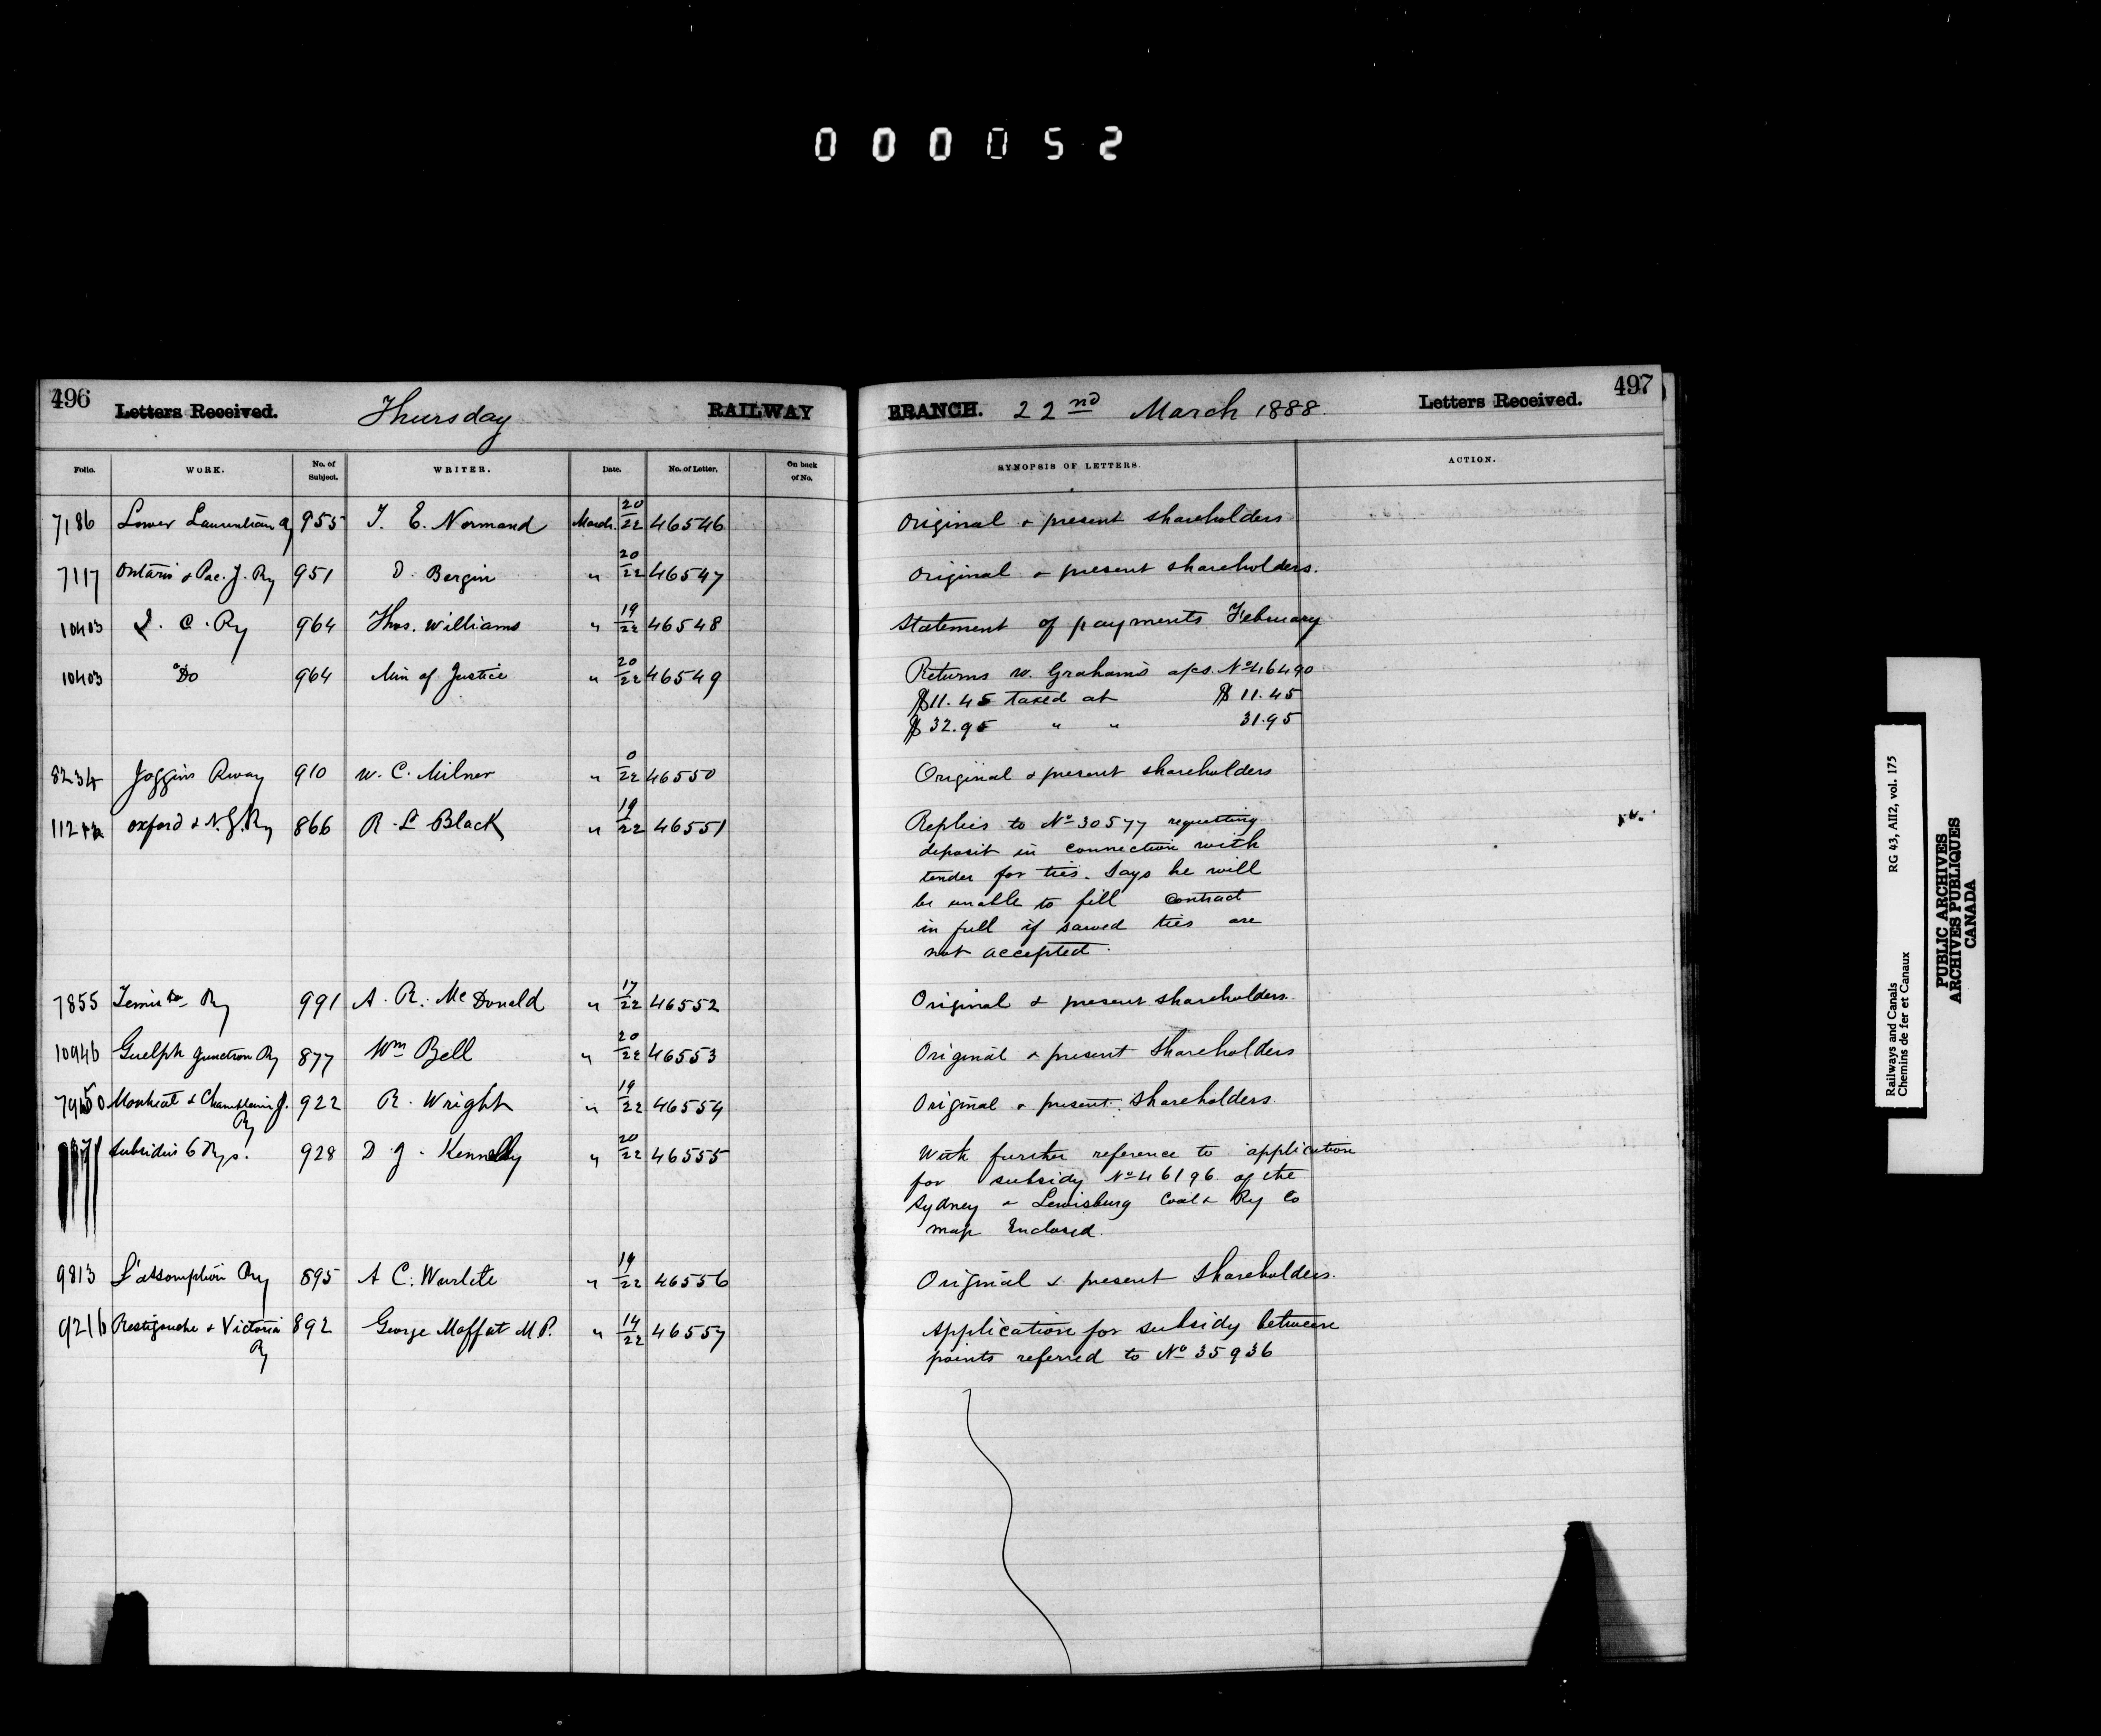 000052
496 Letters Received. Thursday RAILWAY
Folio. WORK. No. of Subject. WRITER. Date. No. of Letter. On back of No.
7186 Lower Laurentian Ry 955 T. E. Normand March 20/22 46546
7117 Ontario & Pac. J. Ry 951 D. Bergin " 20/22 46547
10403 I. C. Ry 964 Thos. Williams " 19/22 46548
10403 Do 964 Min of Justice " 20/22 46549
8234 Joggins Rway 910 W. C. Milner " 0/22 46550
Oxford & N. G. Ry 866 R. L. Black " 19/22 46551
7855 Ry 991 A. R. McDonald " 17/22 46552
10946 Guelph Junction Ry 877 Wm Bell " 20/22 46553
Montreal & Champlain J. Ry 922 R. Wright " 19/22 46554
Subsidies to Rys. 928 D. J. Kennelly " 20/22 46555
9813 L'assomption Ry 895 A C. Wurlete " 19/22 46556
9216 Restigouche & Victoria Ry 892 George Moffat M P. " 14/22 46557
BRANCH. 22nd March 1888. Letters Received. 497
SYNOPSIS OF LETTERS. ACTION.
Original & present shareholders
Original & present shareholders.
Statement of payments February
Returns W. Graham's a/cs. No 46490
$11.45 taxed at $11.45
$32.95 " " 31.95
Original & present shareholders
Replies to No 30577 requesting
deposit in connection with
tender for ties. Says he will
be unable to fill contract
in full if sawed ties are
not accepted.
Original & present shareholders.
Original & present shareholders
Original & present shareholders
With further reference to application
for subsidy No 46196 of the
Sydney & Lewisburg Coal & Ry Co
map Enclosed.
Original & present shareholders.
Application for subsidy between
points referred to No 35936
Railways and Canals RG 43, AII2, vol. 175
Chemins de fer et Canaux
PUBLIC ARCHIVES
ARCHIVES PUBLIQUES
CANADA